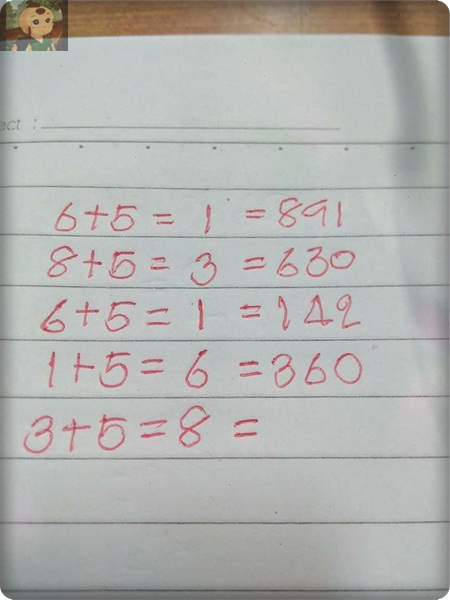 ect :
6+5 = 1 = 891
8+5 = 3 = 630
6+5 = 1 = 242
1+5 = 6 = 360
3+5 = 8 =